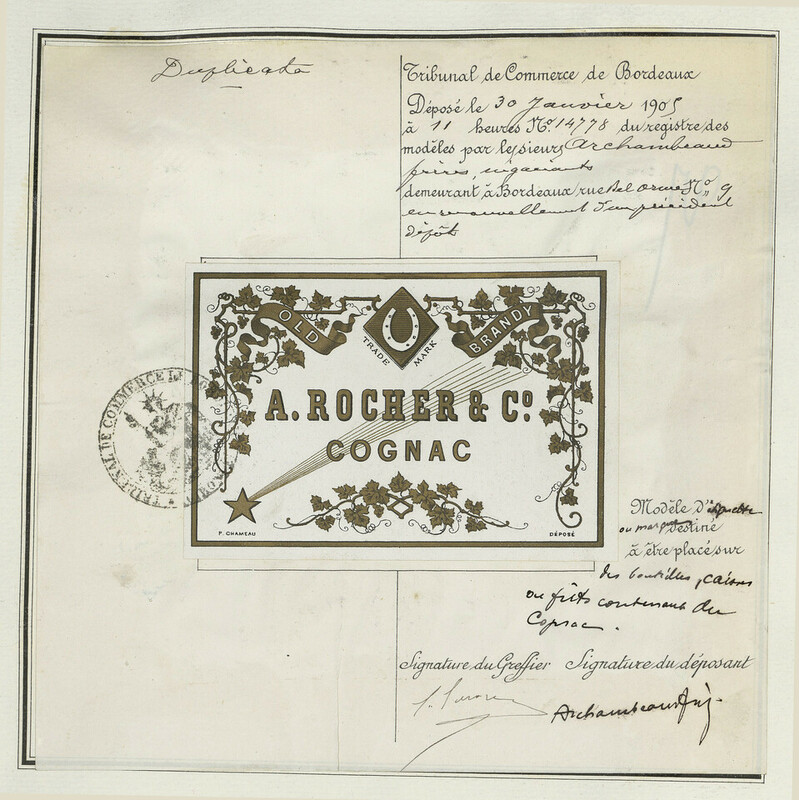 Duplicata
Tribunal de Commerce de Bordeaux
Déposé le 30 Janvier 1905
à 11 heures No. 14778 du registre des
modèles par les sieurs Archambeaud
frères, négociants
demeurant à Bordeaux rue Bel Orme No. 9
en renouvellement d'un précédent
dépôt
OLD BRANDY
TRADE MARK
A. ROCHER & Co.
COGNAC
P. CHAMEAU
DÉPOSÉ
TRIBUNAL DE COMMERCE DE BORDEAUX
Modèle d'étiquette
ou marque destiné
à être placé sur
des bouteilles, caisses
ou fûts contenant du
Cognac.
Signature du Greffier Signature du déposant
Archambeaud